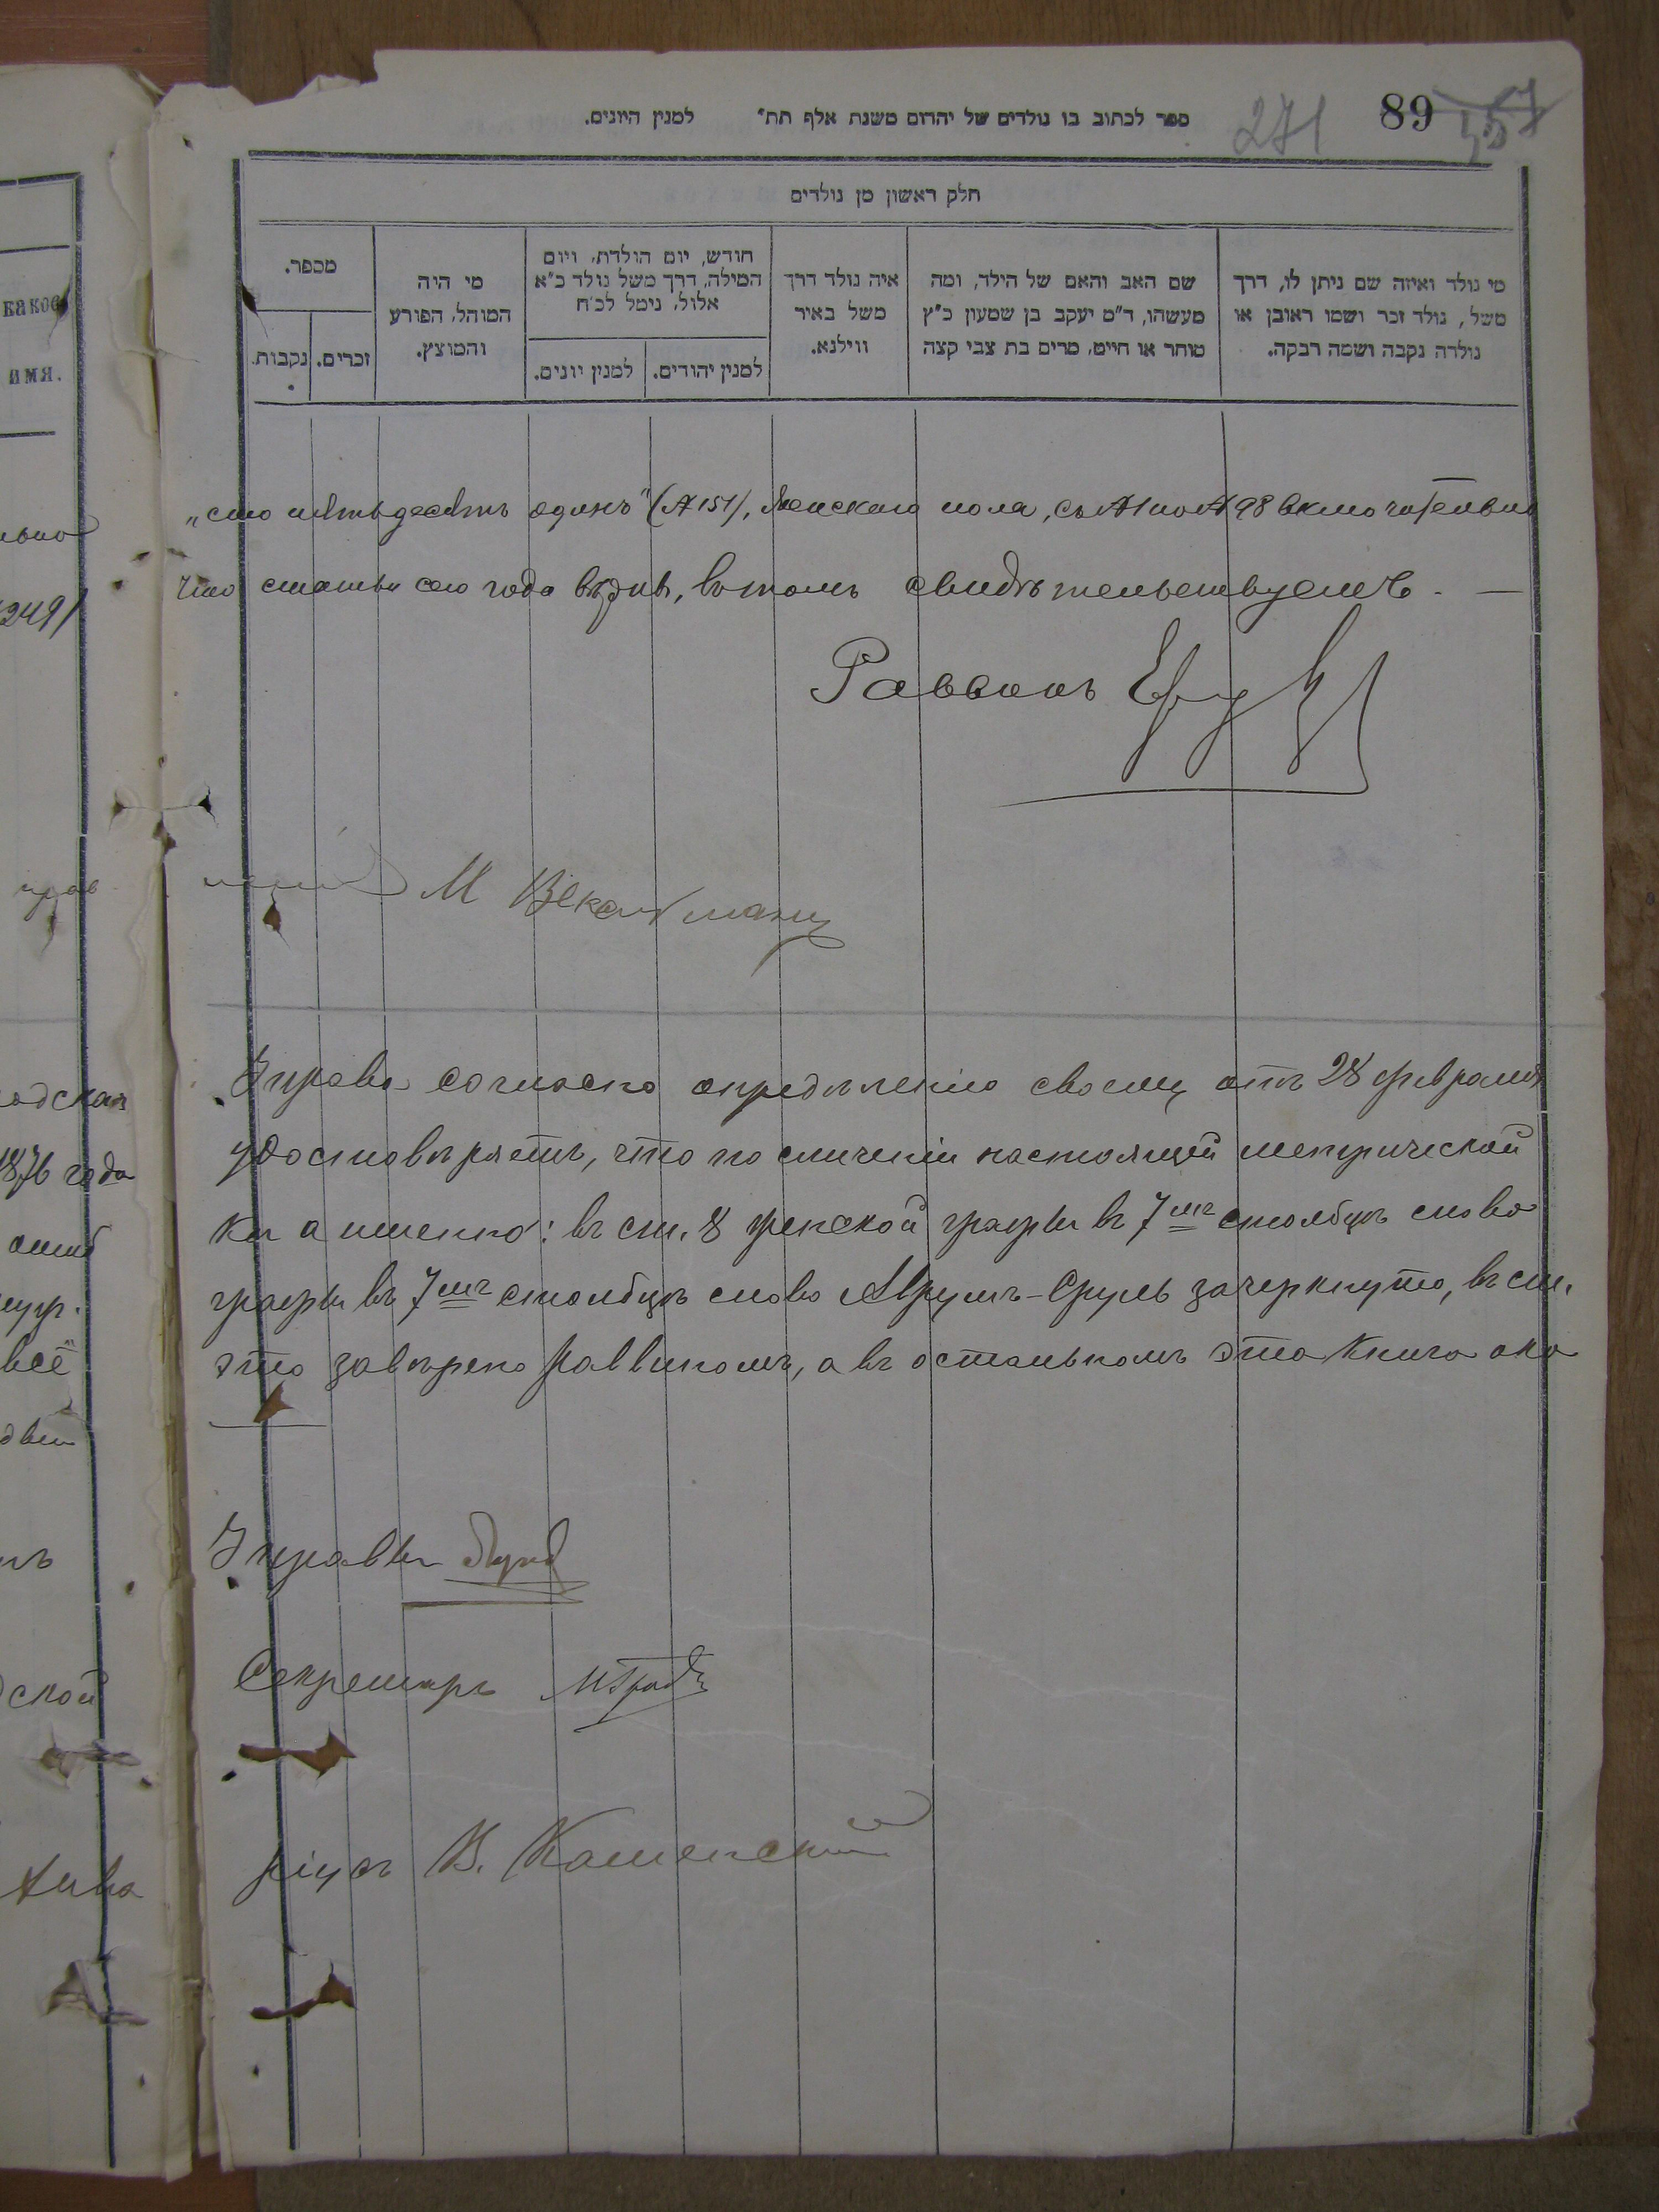 ספר לכתוב בו נולדים של יהדום משנת אלף תת״ למנין היונים.
271
89
חלק ראשון מן נולדים
מי נולד ואיזה שם ניתן לו, דרך
משל, נולד זכר ושמו ראובן או
נולדה נקבה ושמה רבקה.
שם האב והאם של הילד, ומה
מעשהו, ד״מ יעקב בן שמעון כ״ץ
סוחר או חייט, מרים בת צבי קצה
איה נולד דרך
משל באיר
ווילנא.
חודש, יום הולדת, ויום
המילה, דרך משל נולד כ״א
אלול, נימל לכ״ח
למנין יהודים.
למנין יונים.
מי היה
המוהל, הפורע
והמוצץ.
מספר.
זכרים.
נקבות.
„сто пятьдесятъ одинъ" (№ 151), женскаго пола, съ №1 по № 98 включительно
что статьи сего года вѣрны, въ томъ свидѣтельствуемъ. —
Раввинъ
М
Управа согласно опредѣленію своему отъ 28 февраля
удостовѣряетъ, что по сличеніи настоящей метрической
ки а именно: въ ст. 8 женской графы въ 7мъ столбцѣ слово
графы въ 7мъ столбцѣ слово Аврумъ-Сруль зачеркнуто, въ ст.
это завѣрено раввиномъ, а въ остальномъ эта книга ока
Управы
Секретарь
В. Каменскій
вакое
имя.
249/
1876 года
всё
ской